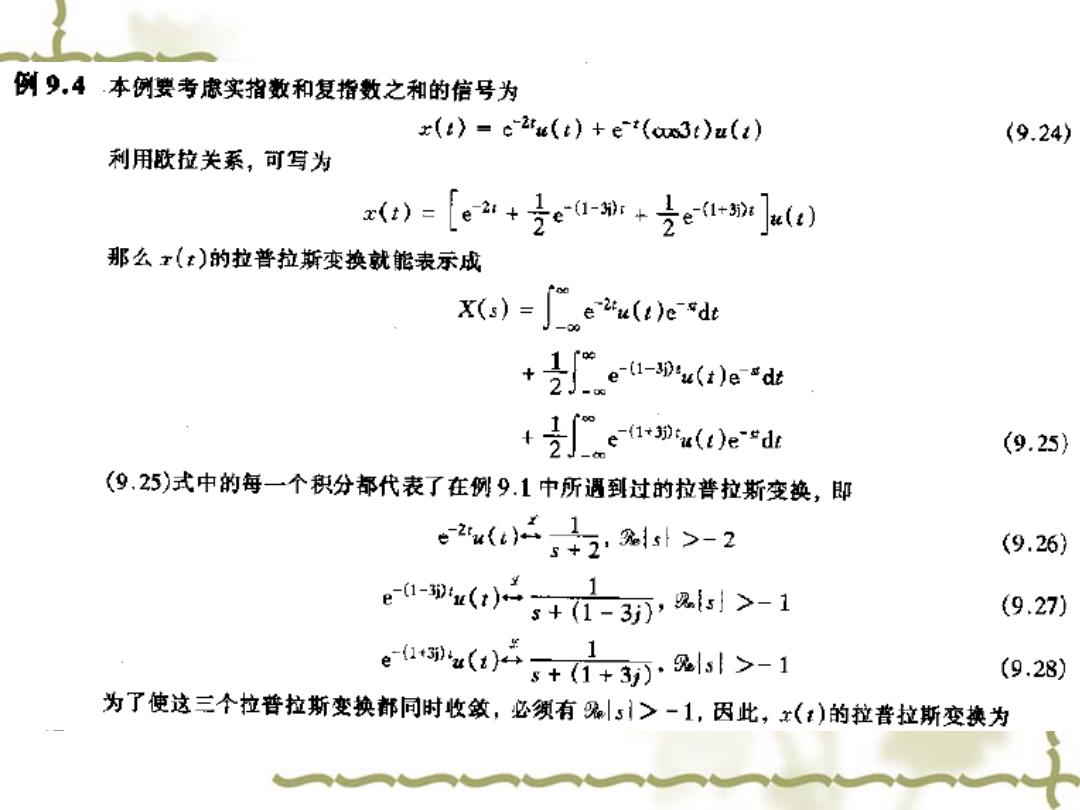 例 9.4 本例要考虑实指数和复指数之和的信号为
x(t) = e^{-2t}u(t) + e^{-t}(cos3t)u(t) (9.24)
利用欧拉关系，可写为
x(t) = [e^{-2t} + \frac{1}{2}e^{-(1-3j)t} + \frac{1}{2}e^{-(1+3j)t}]u(t)
那么 x(t)的拉普拉斯变换就能表示成
X(s) = \int_{-∞}^{∞} e^{-2t}u(t)e^{-st}dt
+ \frac{1}{2}\int_{-∞}^{∞} e^{-(1-3j)t}u(t)e^{-st}dt
+ \frac{1}{2}\int_{-∞}^{∞} e^{-(1+3j)t}u(t)e^{-st}dt (9.25)
(9.25)式中的每一个积分都代表了在例9.1中所遇到过的拉普拉斯变换，即
e^{-2t}u(t) \overset{ℒ}{↔} \frac{1}{s+2}, ℛe{s} > -2 (9.26)
e^{-(1-3j)t}u(t) \overset{ℒ}{↔} \frac{1}{s+(1-3j)}, ℛe{s} > -1 (9.27)
e^{-(1+3j)t}u(t) \overset{ℒ}{↔} \frac{1}{s+(1+3j)}, ℛe{s} > -1 (9.28)
为了使这三个拉普拉斯变换都同时收敛，必须有 ℛe{s} > -1，因此，x(t)的拉普拉斯变换为